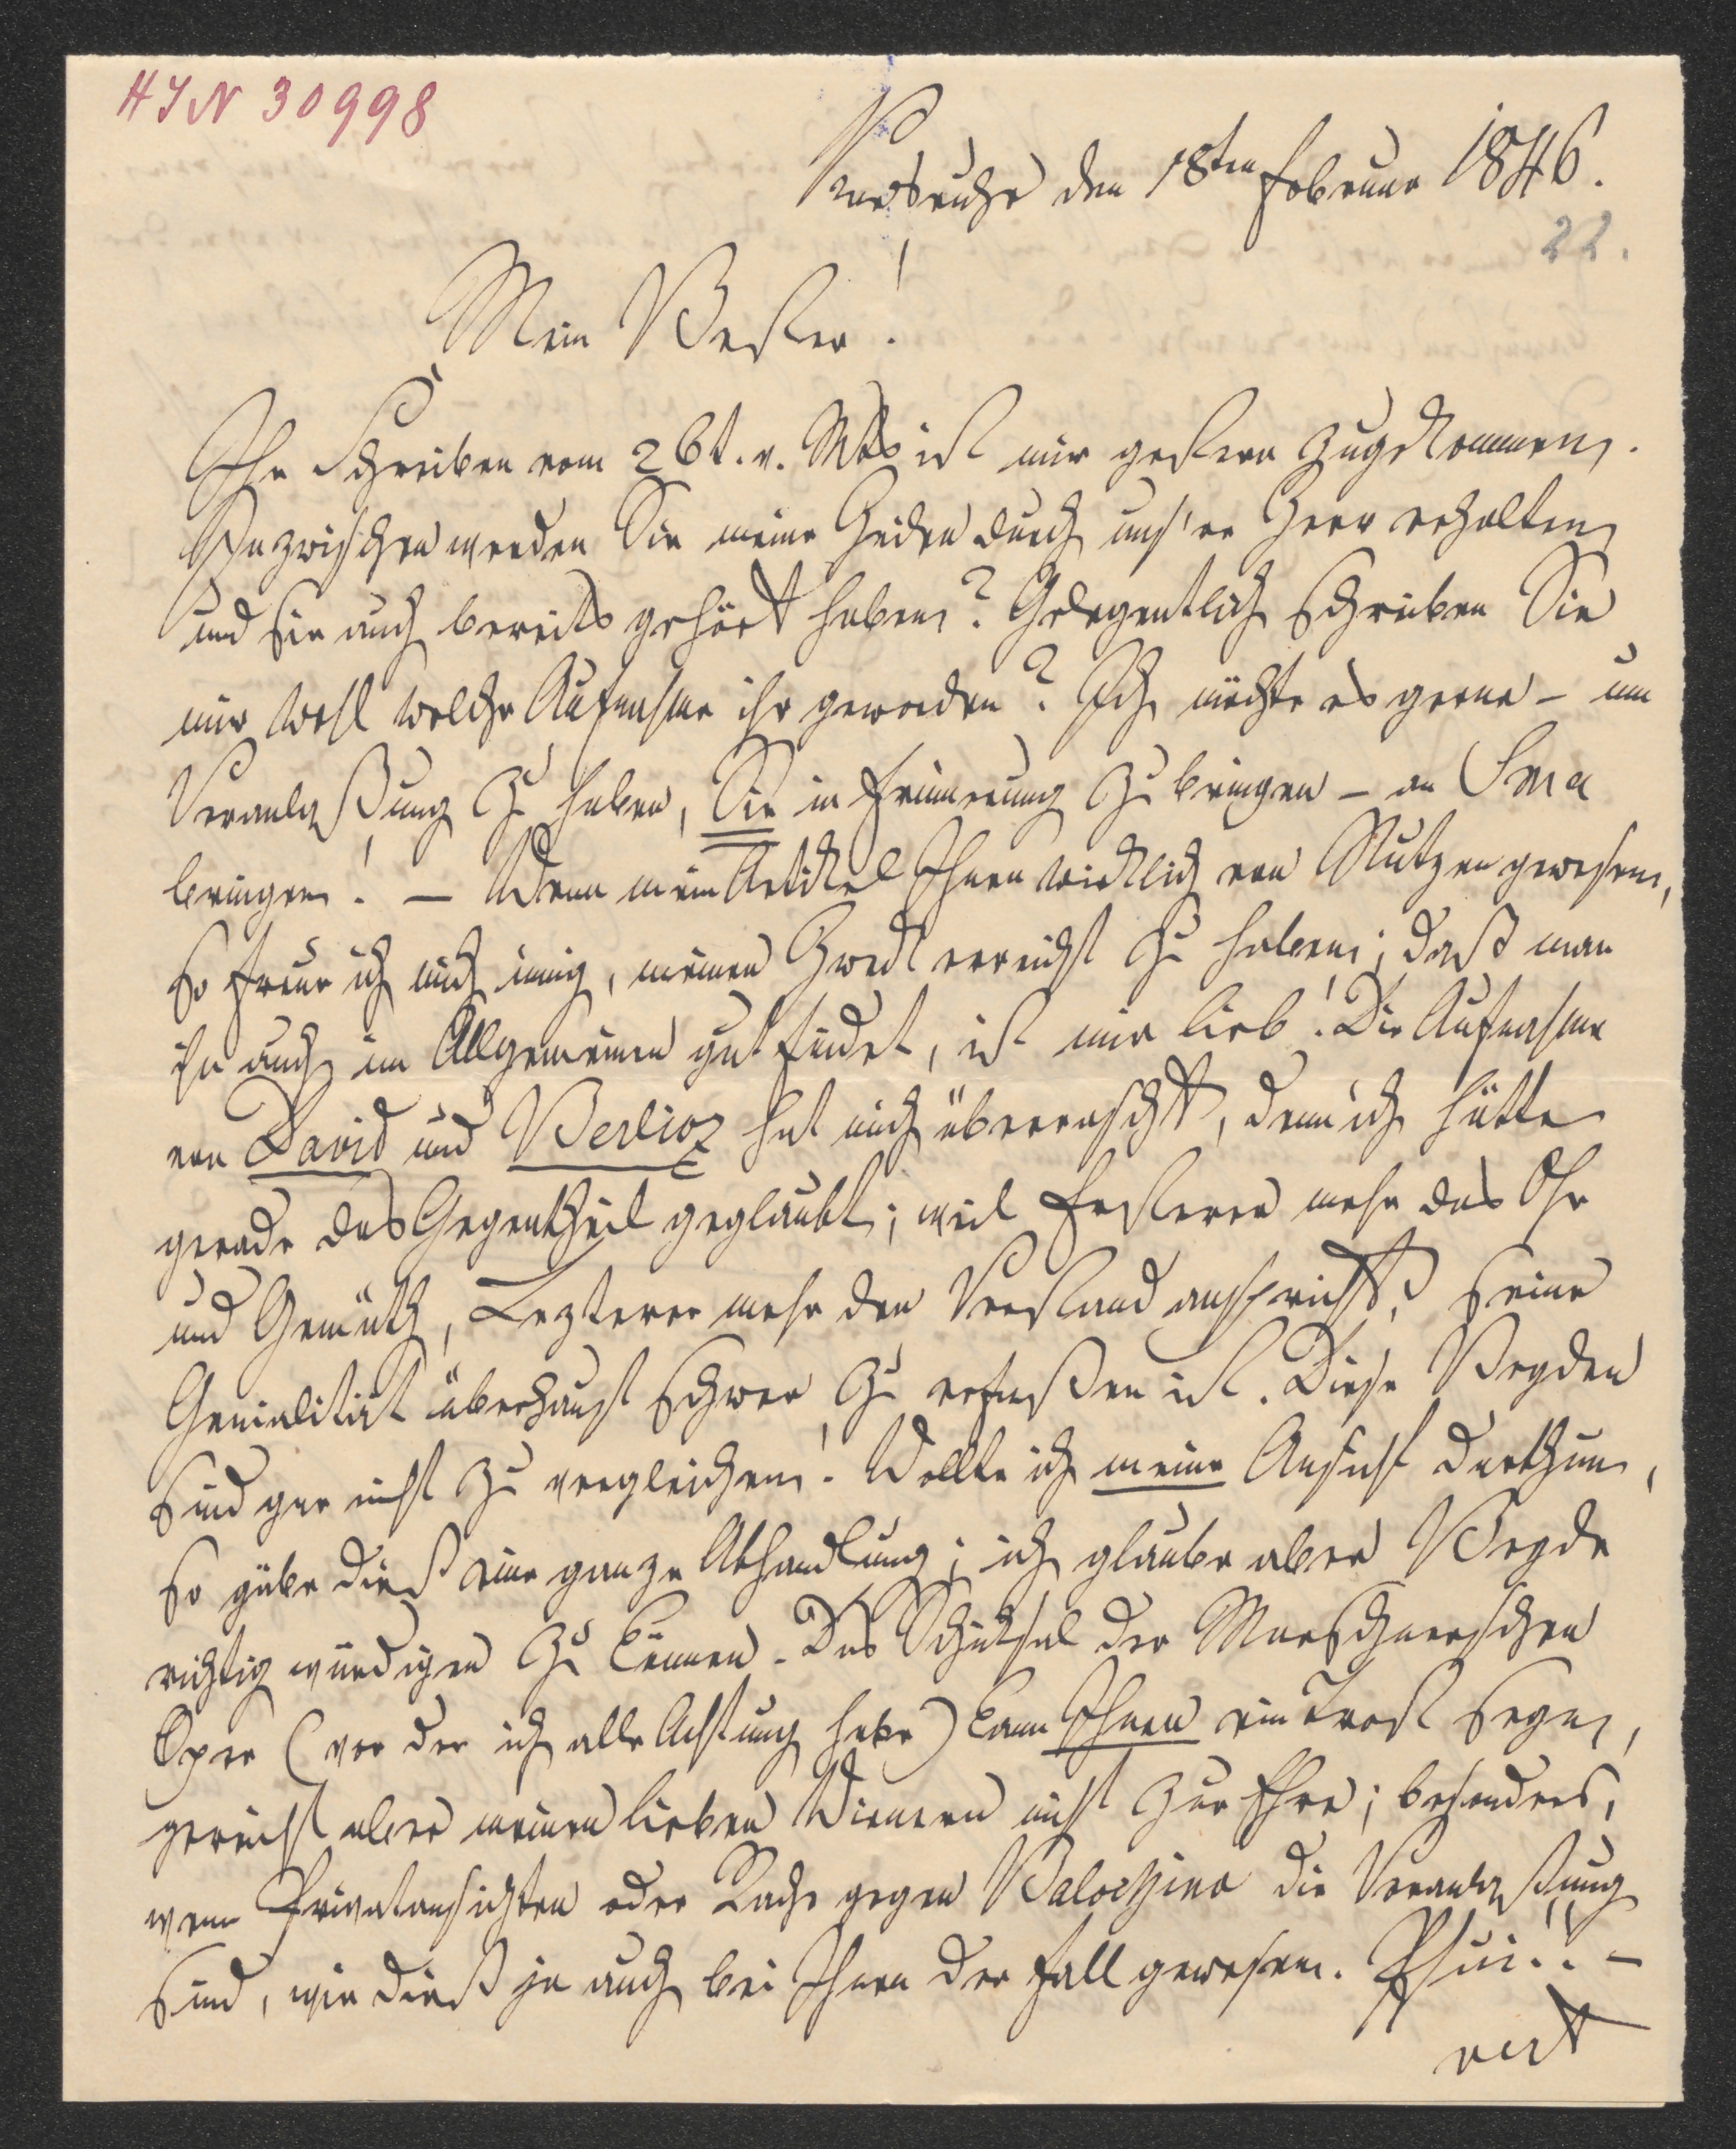 HIN 30998
Karlsruhe den 18ten Februar 1846.
22.
Mein Bester!
Ihr Schreiben vom 26t. v. Mts ist mir gestern zugekommen.
Inzwischen werden Sie meine Heiden durch uns're Herr erhalten
und sie auch bereits gehört haben? Gelegentlich schreiben Sie
mir wohl welche Aufnahme ihr geworden? Ich möchte es gerne – um
Veranlaßung zu haben, Sie in Erinnerung zu bringen – an
bringen! – Wenn mein Artikel Ihnen wirklich von Nutzen gewesen,
so freue ich mich innig, meinen Zweck erreicht zu haben; daß man
ihn auch im Allgemeinen gut findet, ist mir lieb! Die Aufnahme
von David und Berlioz hat mich überrascht, denn ich hätte
gerade das Gegentheil geglaubt; weil Ersterer mehr das Ohr
und Gemüth, Lezterer mehr den Verstand anspricht, seine
Genialität überhaupt schwer zu erfaßen ist. Diese Beyden
sind gar nicht zu vergleichen! Wollte ich meine Ansicht darthun,
so gäbe dieß eine ganze Abhandlung; ich glaube aber Beyde
richtig würdigen zu können. Das Schicksal der Marschnerschen
Oper (vor der ich alle Achtung habe) kann Ihnen ein Trost seyn,
gereicht aber meinen lieben Wienern nicht zur Ehre; besonders,
wenn Privatansichten oder Rache gegen Balochino die Veranlaßung
sind, wie dieß ja auch bei Ihnen der Fall gewesen. Pfui!! –
vert